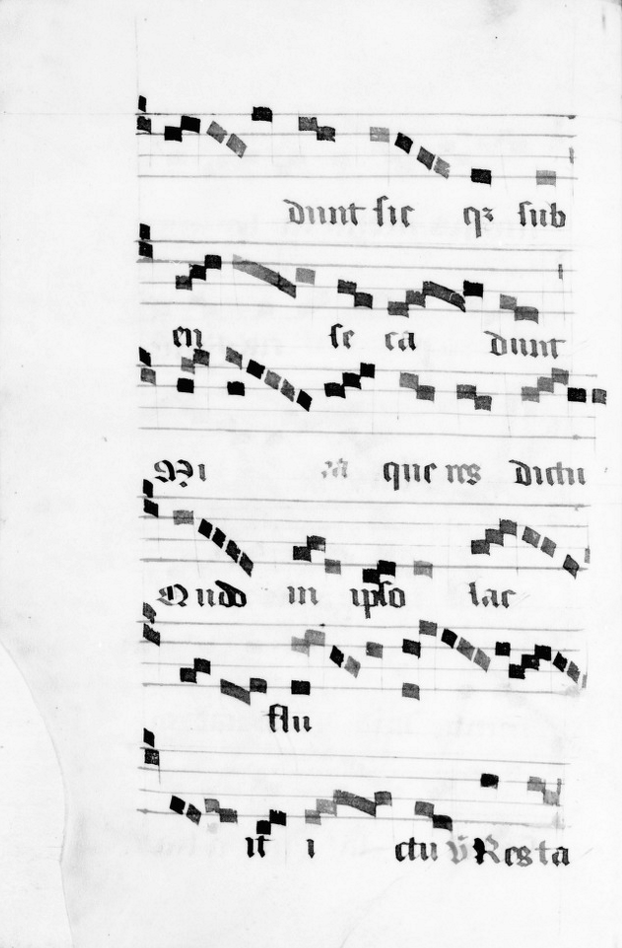 dunt sic qꝫ sub
en se ca dunt
Mi ra que res dictu
Quod in ipso lac
flu
it i ctu v̄ Resta